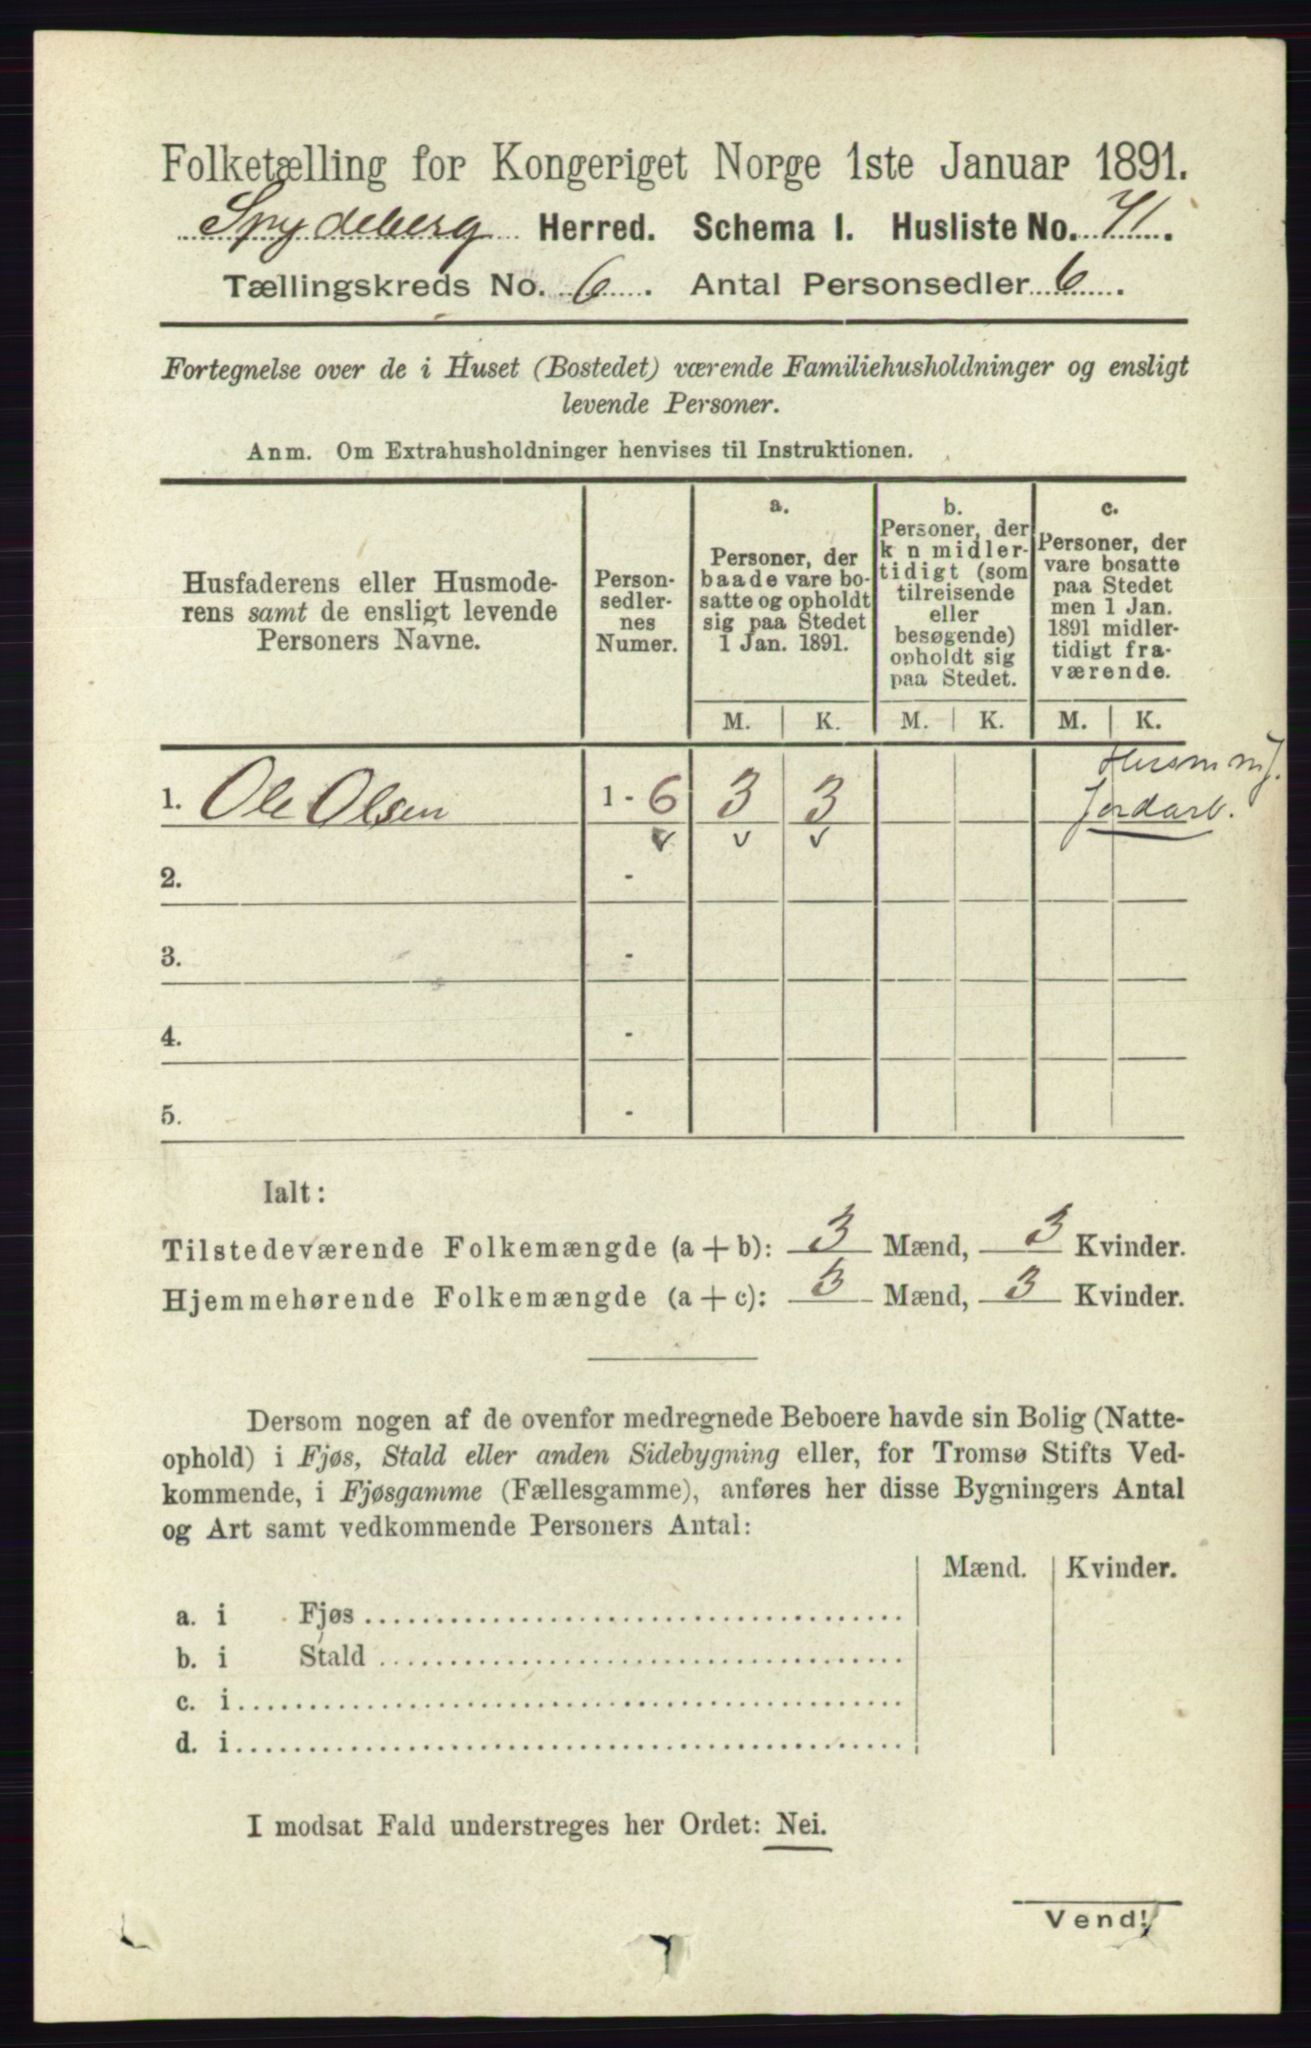 Folketælling for Kongeriget Norge 1ste Januar 1891.
Spydeberg Herred. Schema 1. Husliste No. 71.
Tællingskreds No. 6. Antal Personsedler 6.
Fortegnelse over de i Huset (Bostedet) værende Familiehusholdninger og ensligt
levende Personer.
Anm. Om Extrahusholdninger henvises til Instruktionen.
Husfaderens eller Husmode-
rens samt de ensligt levende
Personers Navne.
Person-
sedler-
nes
Numer.
a.
Personer, der
baade vare bo-
satte og opholdt
sig paa Stedet
1 Jan. 1891.
b.
Personer, der
k n midler-
tidigt (som
tilreisende
eller
besøgende)
opholdt sig
paa Stedet.
c.
Personer, der
vare bosatte
paa Stedet
men 1 Jan.
1891 midler-
tidigt fra-
værende.
M. K. M. K. M. K.
Husm mj.
1. Ole Olsen 1 - 6 3 3 jordarb.
2. -
3. -
4. -
5. -
Ialt:
Tilstedeværende Folkemængde (a + b): 3 Mænd, 3 Kvinder.
Hjemmehørende Folkemængde (a + c): 3 Mænd, 3 Kvinder.
Dersom nogen af de ovenfor medregnede Beboere havde sin Bolig (Natte-
ophold) i Fjøs, Stald eller anden Sidebygning eller, for Tromsø Stifts Ved-
kommende, i Fjøsgamme (Fællesgamme), anføres her disse Bygningers Antal
og Art samt vedkommende Personers Antal:
Mænd. Kvinder.
a. i Fjøs
b. i Stald
c. i
d. i
I modsat Fald understreges her Ordet: Nei.
Vend!